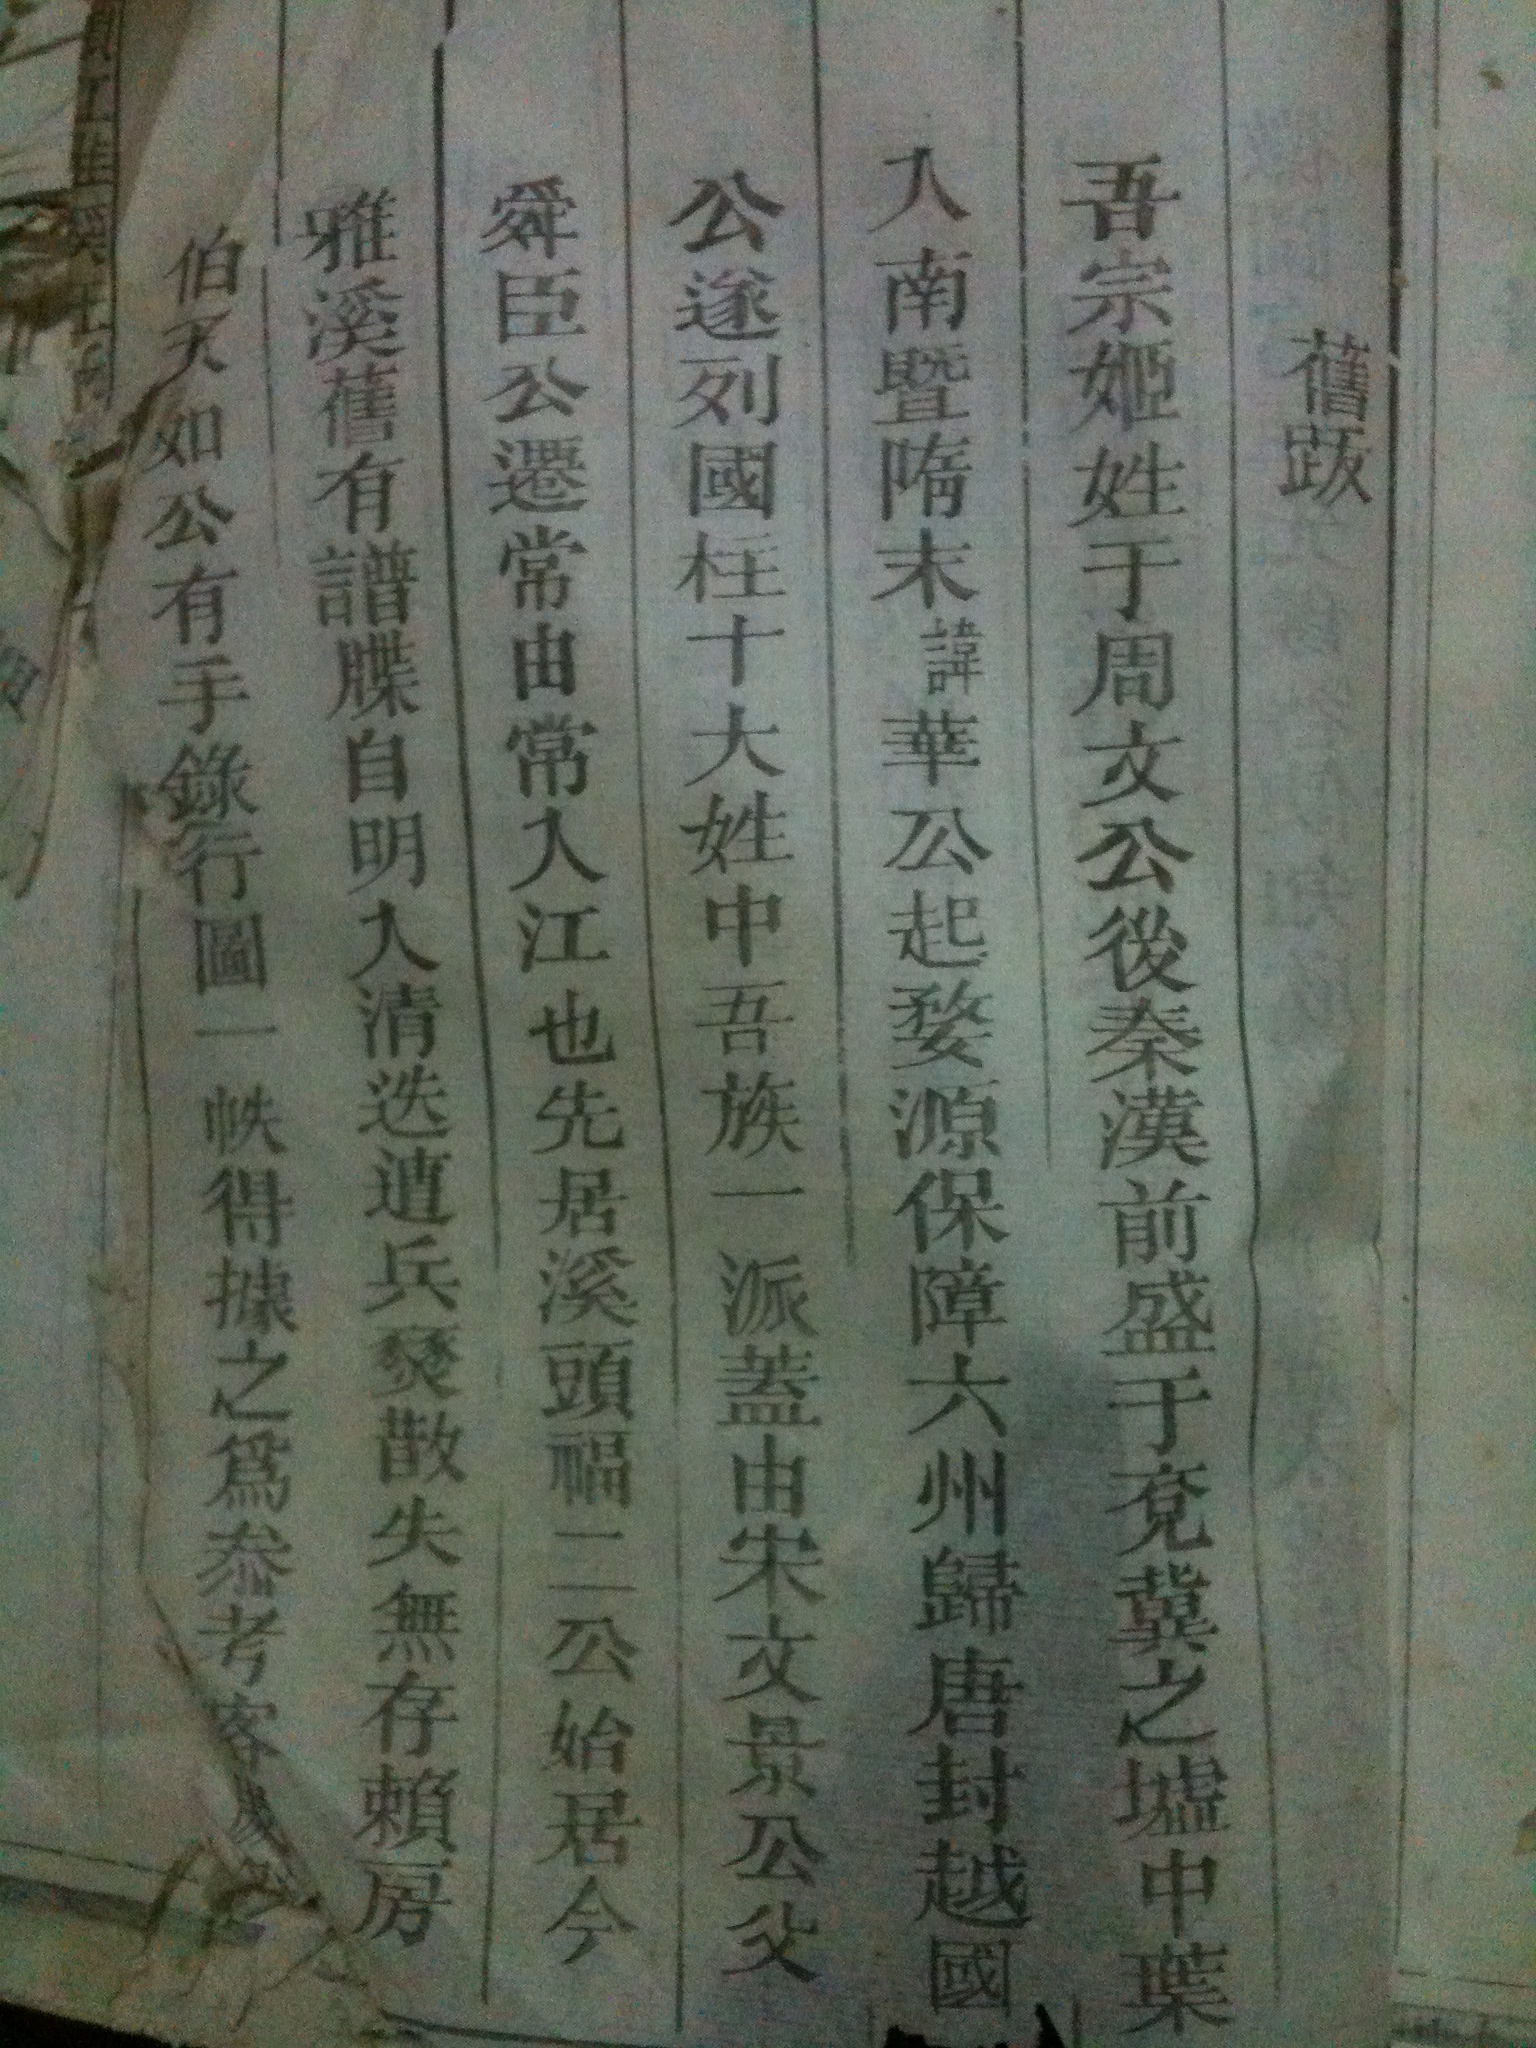 舊跋
吾宗姬姓于周文公後秦漢前盛于兗冀之墟中葉
入南暨隋末諱華公起婺源保障六州歸唐封越國
公遂列國柱十大姓中吾族一派蓋由宋文景公父
舜臣公遷常由常入江也先居溪頭福二公始居今
雅溪舊有譜牒自明入清迭遭兵燹散失無存賴房
伯天如公有手錄行圖一帙得據之爲叅考客歲